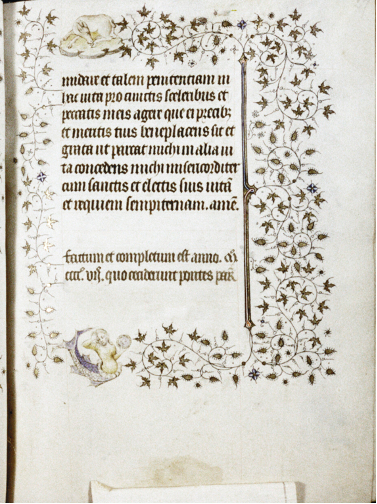 mutare et talem penitentiam in
hac vita pro cunctis sceleribus et
peccatis meis agere que ei precib3
et meritis tuis beneplacens sit et
grata ut parcat michi in alia vi
ta concedens michi misericorditer
cum sanctis et electis suis vitā
et requiem sempiternam. amē.
factum et completum est anno. m̊
cccc̊. vij. quo ceciderunt pontes par̄